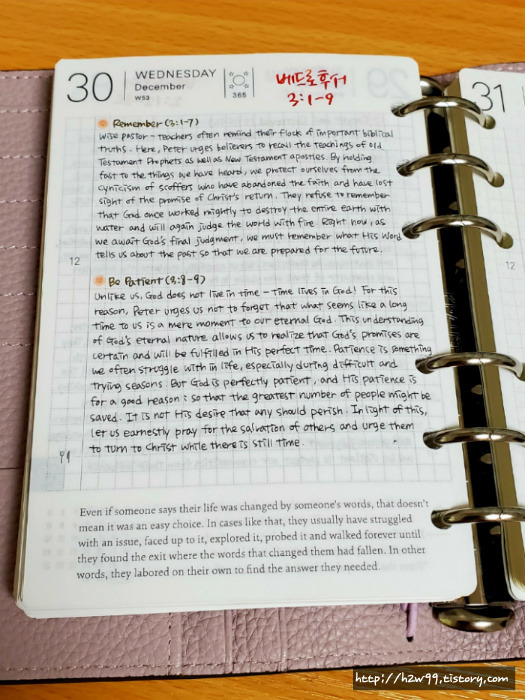 30
WEDNESDAY
December
W53
365
베드로후서
3:1-9
31
Remember (3:1-7)
Wise pastor-teachers often remind their flock of important biblical
truths. Here, Peter urges believers to recall the teachings of Old
Testament Prophets as well as New Testament apostles. By holding
fast to the things we have heard, we protect ourselves from the
cynicism of scoffers who have abandoned the faith and have lost
sight of the promise of Christ's return. They refuse to remember
that God once worked mightly to destroy the entire earth with
water and will again judge the world with fire. Right now, as
we await God's final judgment, we must remember what His Word
tells us about the past so that we are prepared for the future.
12
Be Patient (3:8-9)
Unlike us, God does not live in time - time lives in God! For this
reason, Peter urges us not to forget that what seems like a long
time to us is a mere moment to our eternal God. This understanding
of God's eternal nature allows us to realize that God's promises are
certain and will be fulfilled in His perfect time. Patience is something
we often struggle with in life, especially during difficult and
trying seasons. But God is perfectly patient, and His patience is
for a good reason: so that the greatest number of people might be
saved. It is not His desire that any should perish. In light of this,
let us earnestly pray for the salvation of others and urge them
to turn to Christ while there is still time.
Even if someone says their life was changed by someone's words, that doesn't
mean it was an easy choice. In cases like that, they usually have struggled
with an issue, faced up to it, explored it, probed it and walked forever until
they found the exit where the words that changed them had fallen. In other
words, they labored on their own to find the answer they needed.
http://h2w99.tistory.com